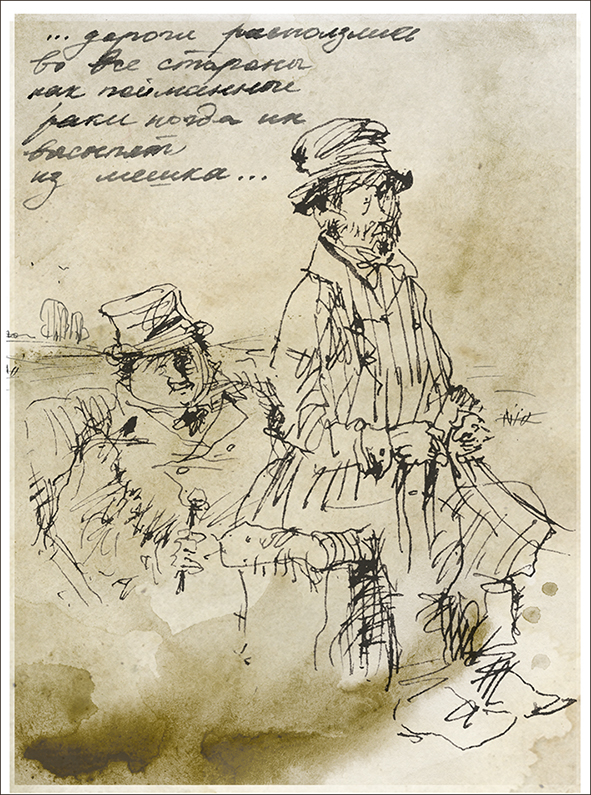 ... дороги расползлись
во все стороны
как пойманные
раки когда их
высыпят
из мешка...